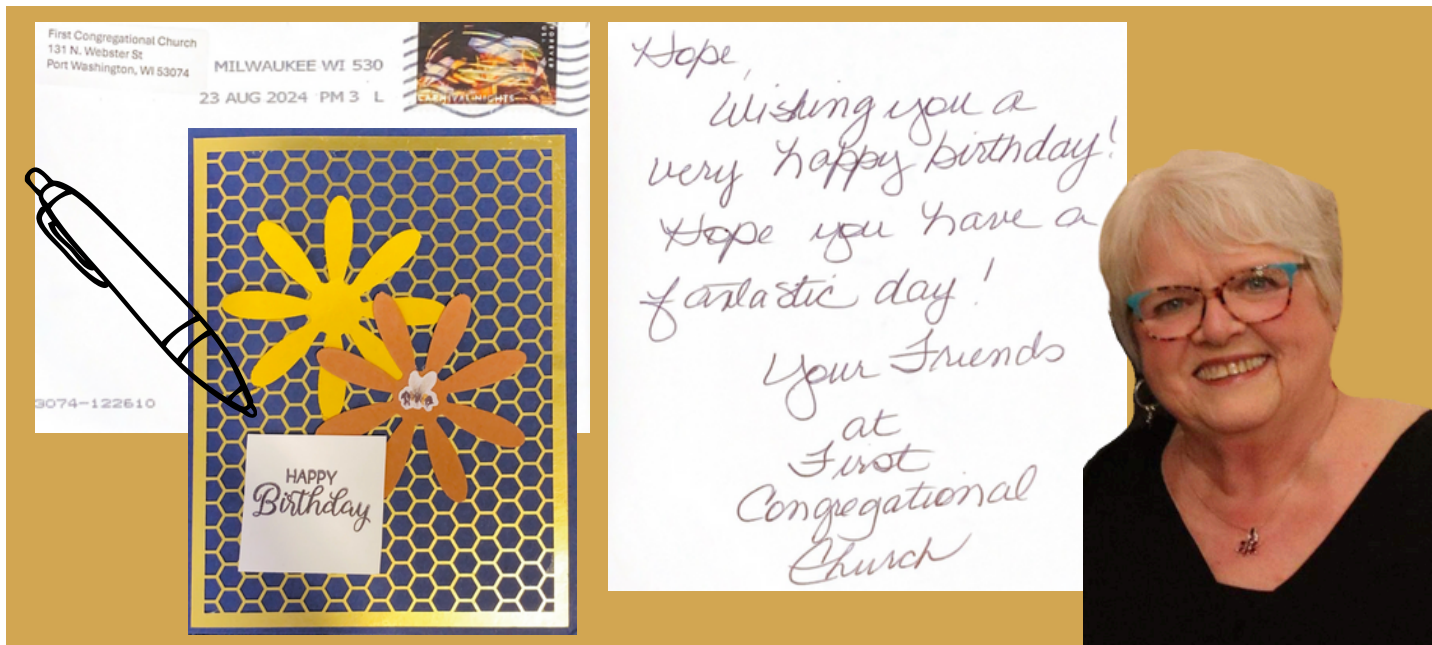 First Congregational Church
131 N. Webster St
Port Washington, WI 53074
MILWAUKEE WI 530
23 AUG 2024 PM 3 L
FOREVER
USA
CARNIVAL NIGHTS
3074-122610
HAPPY
Birthday
Hope,
Wishing you a
very happy birthday!
Hope you have a
fantastic day!
Your Friends
at
First
Congregational
Church